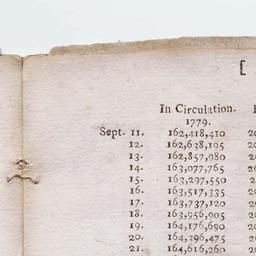 [
In Circulation.
1779.
Sept. 11. 162,418,410 20
12. 162,638,195 20
13. 162,857,980 20
14. 163,077,765 20
15. 163,297,550 20
16. 163,517,335 20
17. 163,737,120 20
18. 163,956,905 20
19. 164,176,690 20
20. 164,396,475 20
21. 164,616,260 20